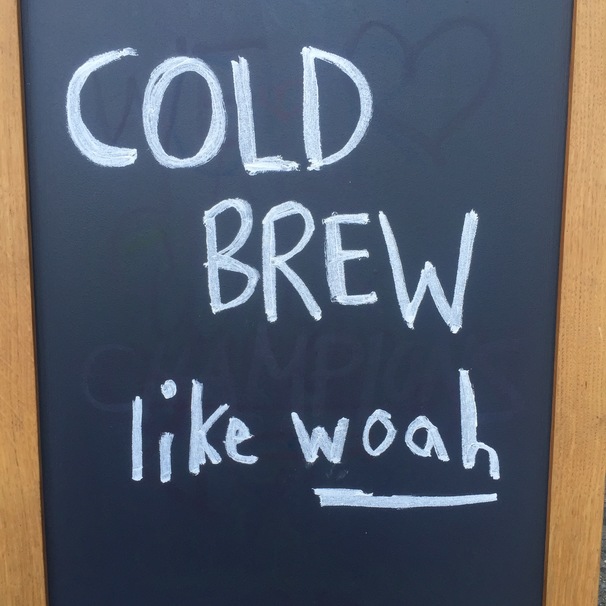 COLD
BREW
like woah